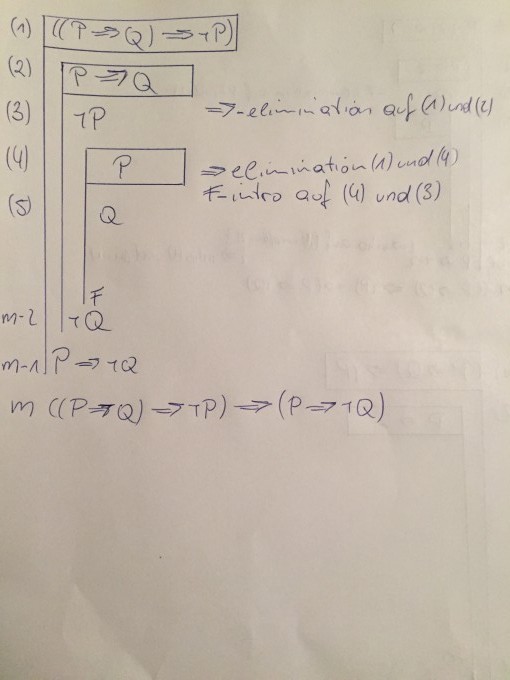 (1) ((P ⇒ Q) ⇒ ¬P)
(2) P ⇒ Q
(3) ¬P ⇒-elimination auf (1) und (2)
(4) P ⇒ elimination (1) und (4)
F-intro auf (4) und (3)
(5) Q
F
m-2 ¬Q
m-1 P ⇒ ¬Q
m ((P ⇒ Q) ⇒ ¬P) ⇒ (P ⇒ ¬Q)